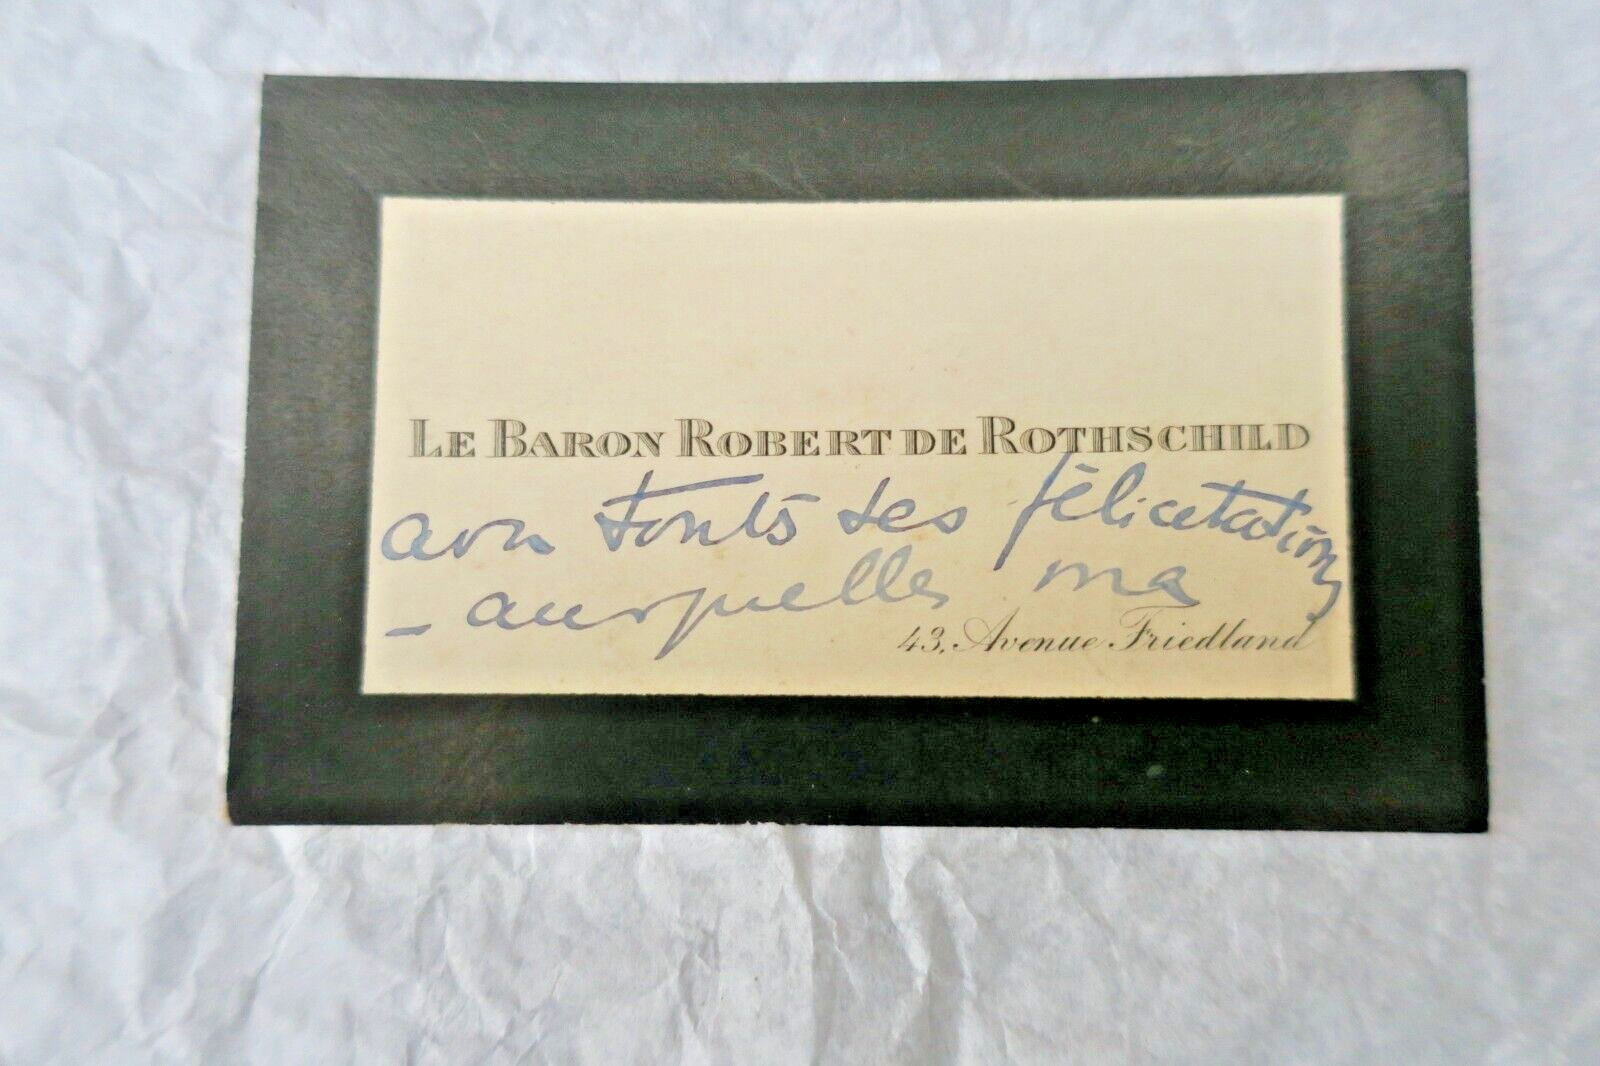 LE BARON ROBERT DE ROTHSCHILD
avec toutes ses félicitations
- auxquelles ma
43, Avenue Friedland